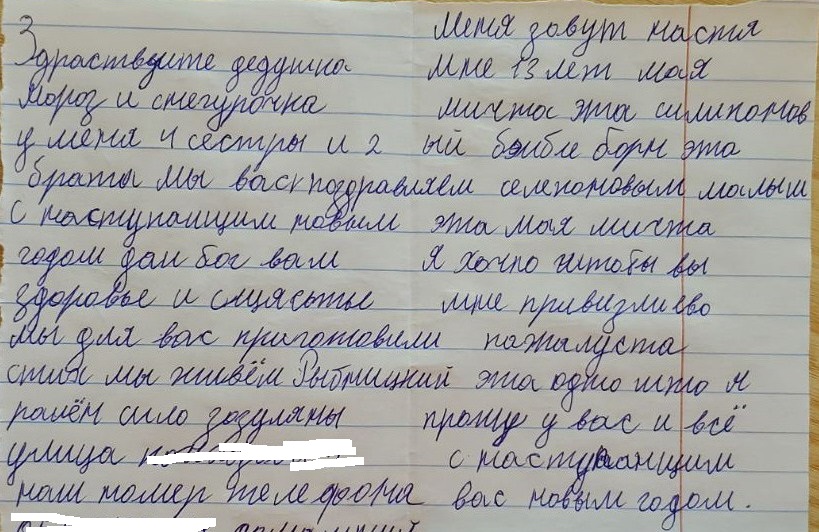 Здраствуите дедушка
мороз и снегурочка
у меня 4 сестры и 2
браты мы вас поздравляем
с наступанщим новым
годом дай бог вам
здоровье и сщясьтье
мы для вас приготовили
стих мы живём Рыбницкий
раён сило зозуляны
улица
наш номер телефона
меня зовут настя
мне 13 лет мая
мичта эта силиконов
ый бэибе борн эта
селеконовым малыш
эта мая мичта
я хочю штобы вы
мне привизли ево
пажалуста
эта одно што я
прошу у вас и всё
с наступанщим
вас новым годом.